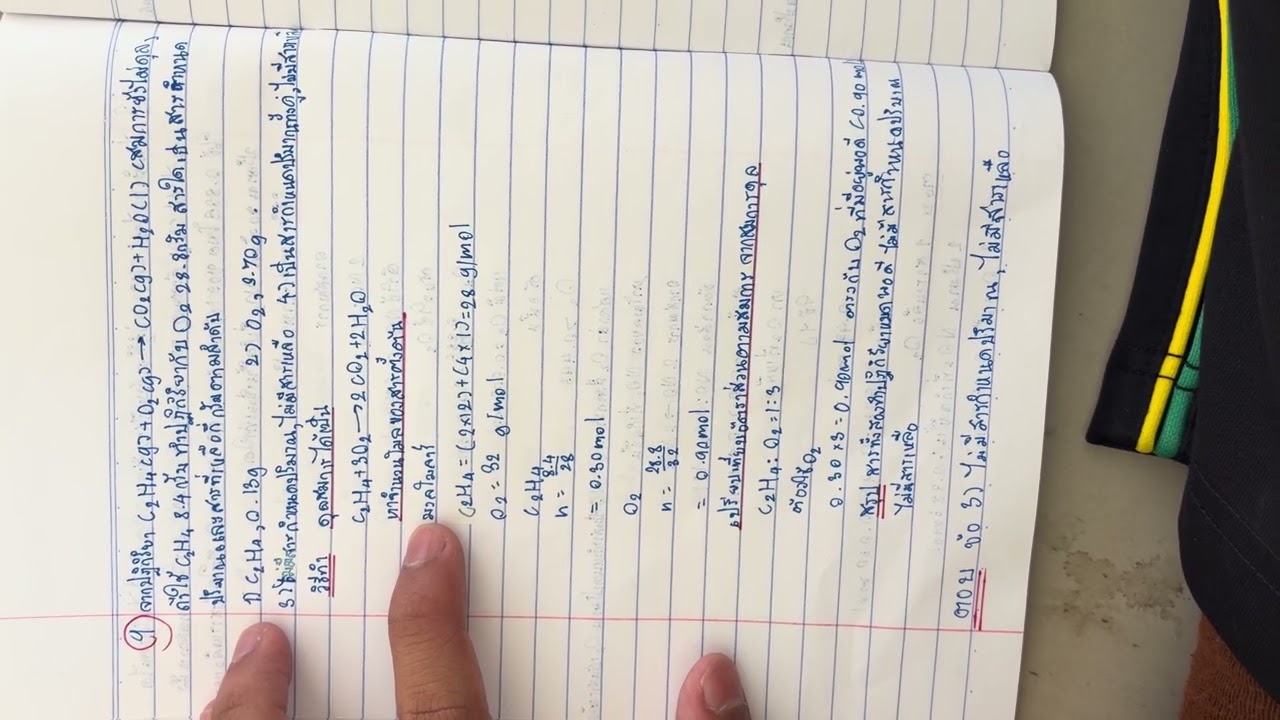 9) จากปฏิกิริยา C₂H₄(g) + O₂(g) → CO₂(g) + H₂O(l) (สมการยังไม่ดุล)
ถ้าใช้ C₂H₄ 8.4 กรัม ทำปฏิกิริยากับ O₂ 28.8 กรัม สารใดเป็นสารกำหนด
ปริมาณและสารที่เหลือกี่กรัมตามลำดับ
1) C₂H₄, 0.13g 2) O₂, 3.70g
3) ไม่มีสารกำหนดปริมาณ, ไม่มีสารเหลือ 4) เป็นสารกำหนดปริมาณทั้งคู่, ไม่มีสารเหลือ
วิธีทำ ดุลสมการได้เป็น
C₂H₄ + 3O₂ → 2CO₂ + 2H₂O
หาจำนวนโมลของสารตั้งต้น
มวลโมลาร์
C₂H₄ = (2×12) + (4×1) = 28 g/mol
O₂ = 32 g/mol
C₂H₄
n = 8.4/28
= 0.30 mol
O₂
n = 28.8/32
= 0.90 mol
เปรียบเทียบอัตราส่วนตามสมการ จากสมการดุล
C₂H₄ : O₂ = 1:3
ต้องใช้ O₂
0.30 × 3 = 0.90 mol ตรงกับ O₂ ที่มีอยู่พอดี (0.90 mol
สรุป สารทั้งสองทำปฏิกิริยาหมดพอดี ไม่มีสารกำหนดปริมาณ
ไม่มีสารเหลือ
ตอบ ข้อ 3) ไม่มีสารกำหนดปริมาณ, ไม่มีสารเหลือ